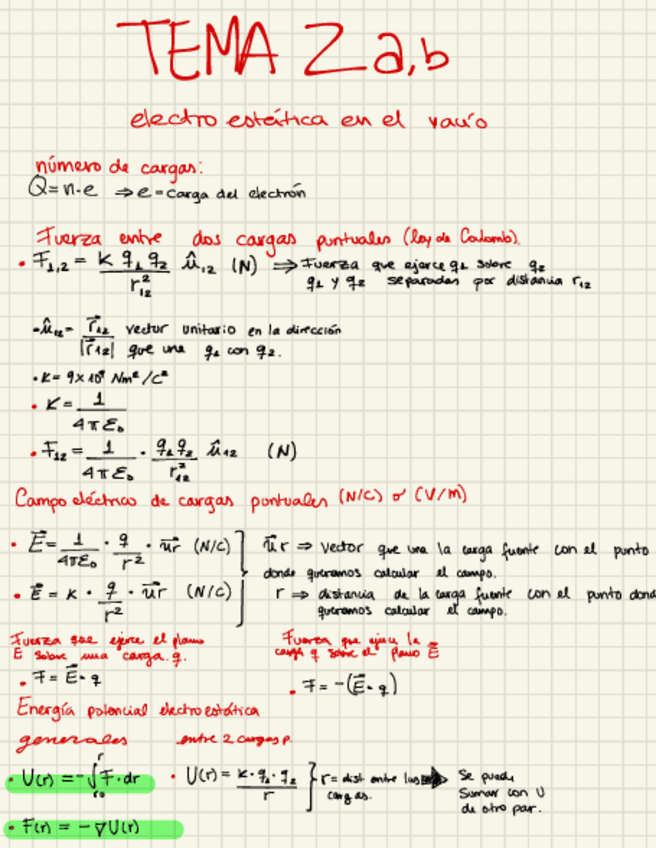 TEMA 2 a,b
electroestática en el vacío
número de cargas:
Q = n·e ⇒ e = carga del electrón
Fuerza entre dos cargas puntuales (ley de Coulomb).
• F₁,₂ = K q₁ q₂ / r₁₂² û₁₂ (N) ⇒ Fuerza que ejerce q₁ sobre q₂
q₁ y q₂ separadas por distancia r₁₂
• û₁₂ = r⃗₁₂ / |r⃗₁₂| vector unitario en la dirección
que une q₁ con q₂.
• K = 9×10⁹ Nm²/C²
• K = 1 / 4πε₀
• F₁₂ = 1 / 4πε₀ · q₁q₂ / r₁₂² û₁₂ (N)
Campo eléctrico de cargas puntuales (N/C) o (V/m)
• E⃗ = 1 / 4πε₀ · q / r² · u⃗r (N/C) u⃗r ⇒ vector que une la carga fuente con el punto
donde queramos calcular el campo.
• E⃗ = K · q / r² · u⃗r (N/C) r ⇒ distancia de la carga fuente con el punto dond
queramos calcular el campo.
Fuerza que ejerce el plano
E sobre una carga q.
• F = E⃗ · q
Fuerza que ejerce la
carga q sobre el plano E⃗
• F = -(E⃗ · q)
Energía potencial electroestática
generales entre 2 cargas p.
• U(r) = -∫ᵣ₀ʳ F⃗ · dr • U(r) = K · q₁ · q₂ / r } r = dist entre las cargas. ⇒ Se puede
sumar con U
de otro par.
• F(r) = -∇U(r)